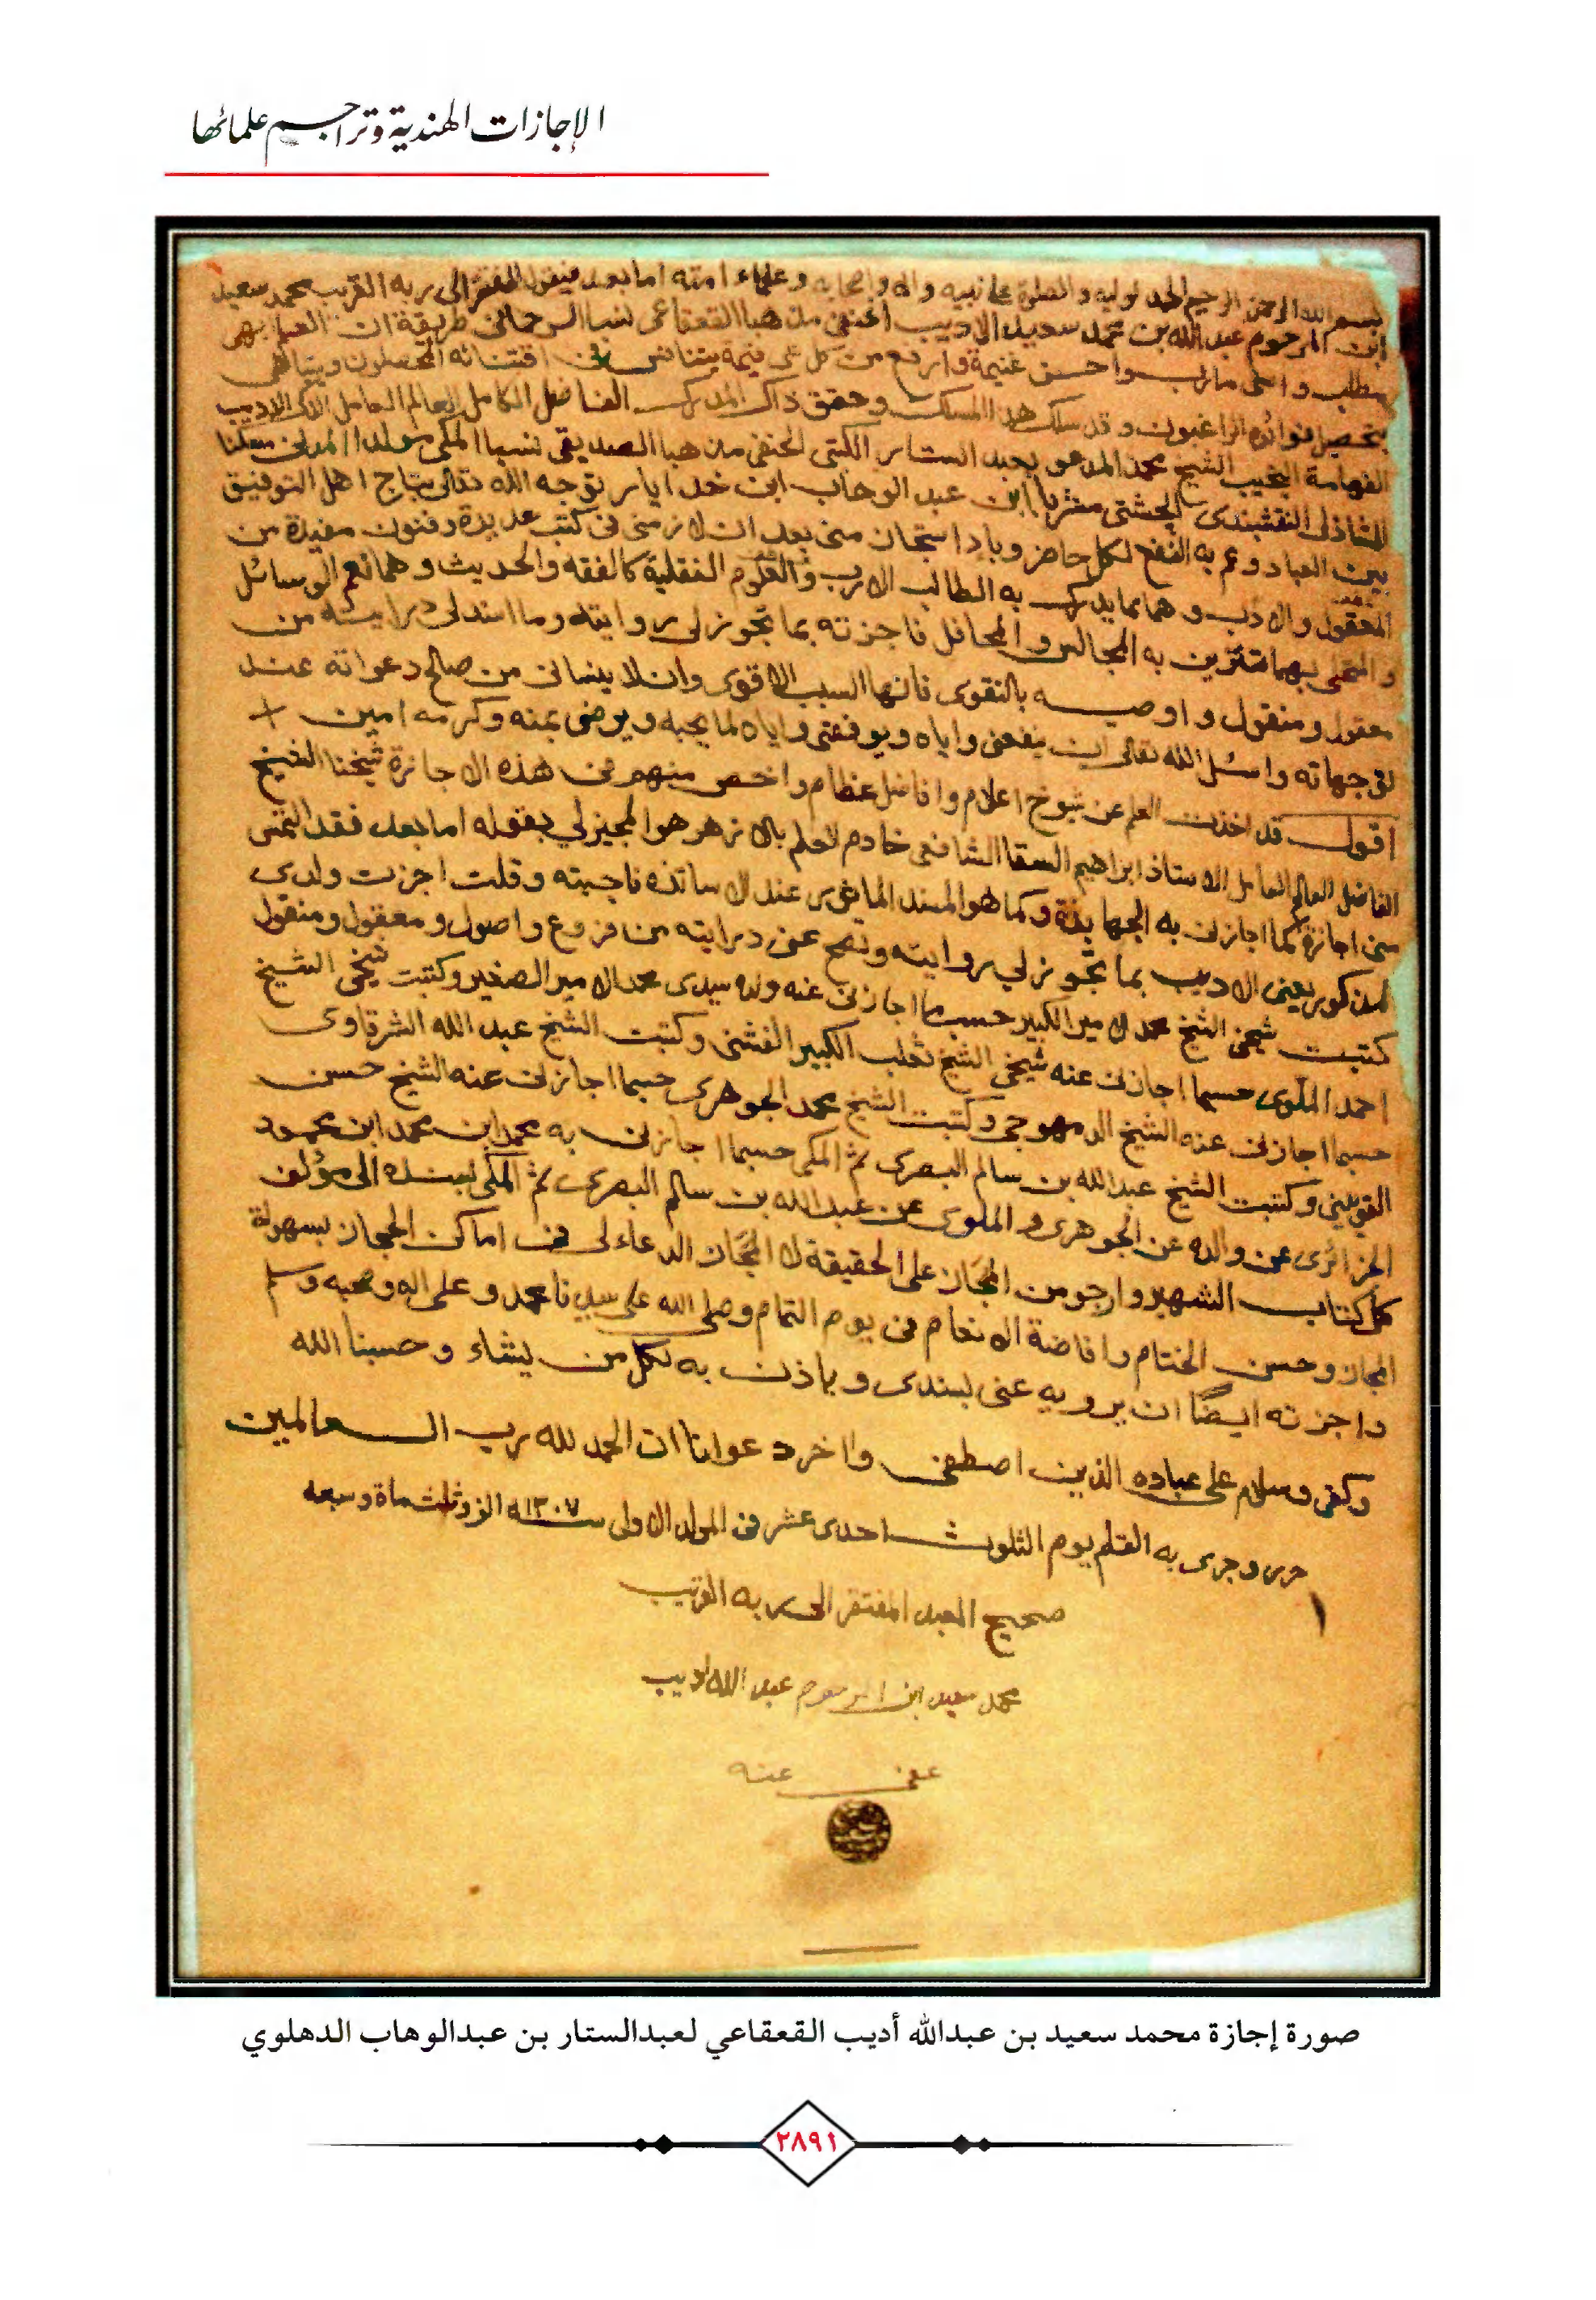 الإجازات الهندية وتراجم علمائها
بسم الله الرحمن الرحيم الحمد لوليه والصلوة على نبيه واله واصحابه وعلماء امته اما بعد فيقول المفتقر الى ربه القريب محمد سعيد
ابن المرحوم عبد الله بن محمد سعيد الاديب الحنفي مذهبا القعقاعي نسبا الرحماني طريقة ان العلم ابهى
مطلب واعلى مارب واحسن غنيمة وارفع من كل شي قيمة يتنافس في اقتنائه المحصلون ويتباهى
بتحصيل فوائده الراغبون وقد سلك هذا المسلك وحقق ذاك المدرك الفاضل الكامل العالم العامل الذكي الاديب
الفهامة النجيب الشيخ محمد المدعو بعبد الستار الكتبى الحنفي مذهبا الصديقي نسبا المكي مولدا المدني مسكنا
الشاذلى النقشبندى الچشتى مشربا ابن عبد الوهاب ابن خدايار توجه الله تعالى بتاج اهل التوفيق
بين العباد وعم به النفع لكل حاضر وباد استجاز منى بعد ان لازمنى فى كتب عديدة وفنون مفيدة من
المعقول والادب وهما مما يدرك به الطالب الارب والعلوم النقلية كالفقه والحديث وهما نعم الوسائل
والتحلى بهما تتزين به المجالس والمحافل فاجزته بما تجوز لى روايته وما اسند لى درايته من
معقول ومنقول واوصيه بالتقوى فانها السبب الاقوى وان لا ينسانى من صالح دعواته عند
توجهاته واسئل الله تعالى ان ينفعنى واياه ويوفقنى واياه لما يحبه ويرضى بمنه وكرمه امين
اقول قد اخذت العلم عن شيوخ اعلام وافاضل عظام واخص منهم فى هذه الاجازة شيخنا الشيخ
الفاضل العالم العامل الاستاذ ابراهيم السقا الشافعى خادم العلم بالازهر هو المجيز لي بقوله اما بعد فقد التمس
منى اجازة كما اجازنى به الجهابذة وكما هو المسند الماثور عند الاساتذه فاجبته وقلت اجزت ولدى
المذكور يعنى الاديب بما تجوز لي روايته وتصح عنى درايته من فروع واصول ومعقول ومنقول
كتبت شيخي الشيخ محمد الامير الكبير حسبما اجازنى عنه ولده سيدى محمد الامير الصغير وكتبت شيخي الشيخ
احمد الملوى حسبما اجازنى عنه شيخي الشيخ ثعلب الكبير الفشنى وكتبت الشيخ عبد الله الشرقاوى
حسبما اجازنى عنه الشيخ الدمهوجي وكتبت الشيخ محمد الجوهرى حسبما اجازنى عنه الشيخ حسن
القويسني وكتبت الشيخ عبد الله بن سالم البصرى ثم المكى حسبما اجازنى به محمد ابن محمد ابن محمود
الجزائرى عن والده عن الجوهرى والملوى عن عبد الله بن سالم البصرى ثم المكى بسنده الى مؤلف
كل كتاب الشهير وارجو من المجاز على الحقيقة لا المجاز الدعاء لى فى اماكن الحجاز بسهولة
المجاز وحسن الختام وافاضة الانعام فى يوم التمام وصلى الله على سيدنا محمد وعلى اله وصحبه وسلم
واجزته ايضًا ان يرويه عنى بسندى وياذن به لكل من يشاء وحسبنا الله
وكفى وسلام على عباده الذين اصطفى واخر دعوانا ان الحمد لله رب العالمين
حرر وجرى به القلم يوم الثلوث احدى عشر فى المولد الاولى سنه ١٣٠٧ الف وثلث ماة وسبعه
صحيح العبد المفتقر الى ربه القريب
محمد سعيد ابن المرحوم عبد الله اديب
عفى عنه
صورة إجازة محمد سعيد بن عبدالله أديب القعقاعي لعبدالستار بن عبدالوهاب الدهلوي
٢٨٩١